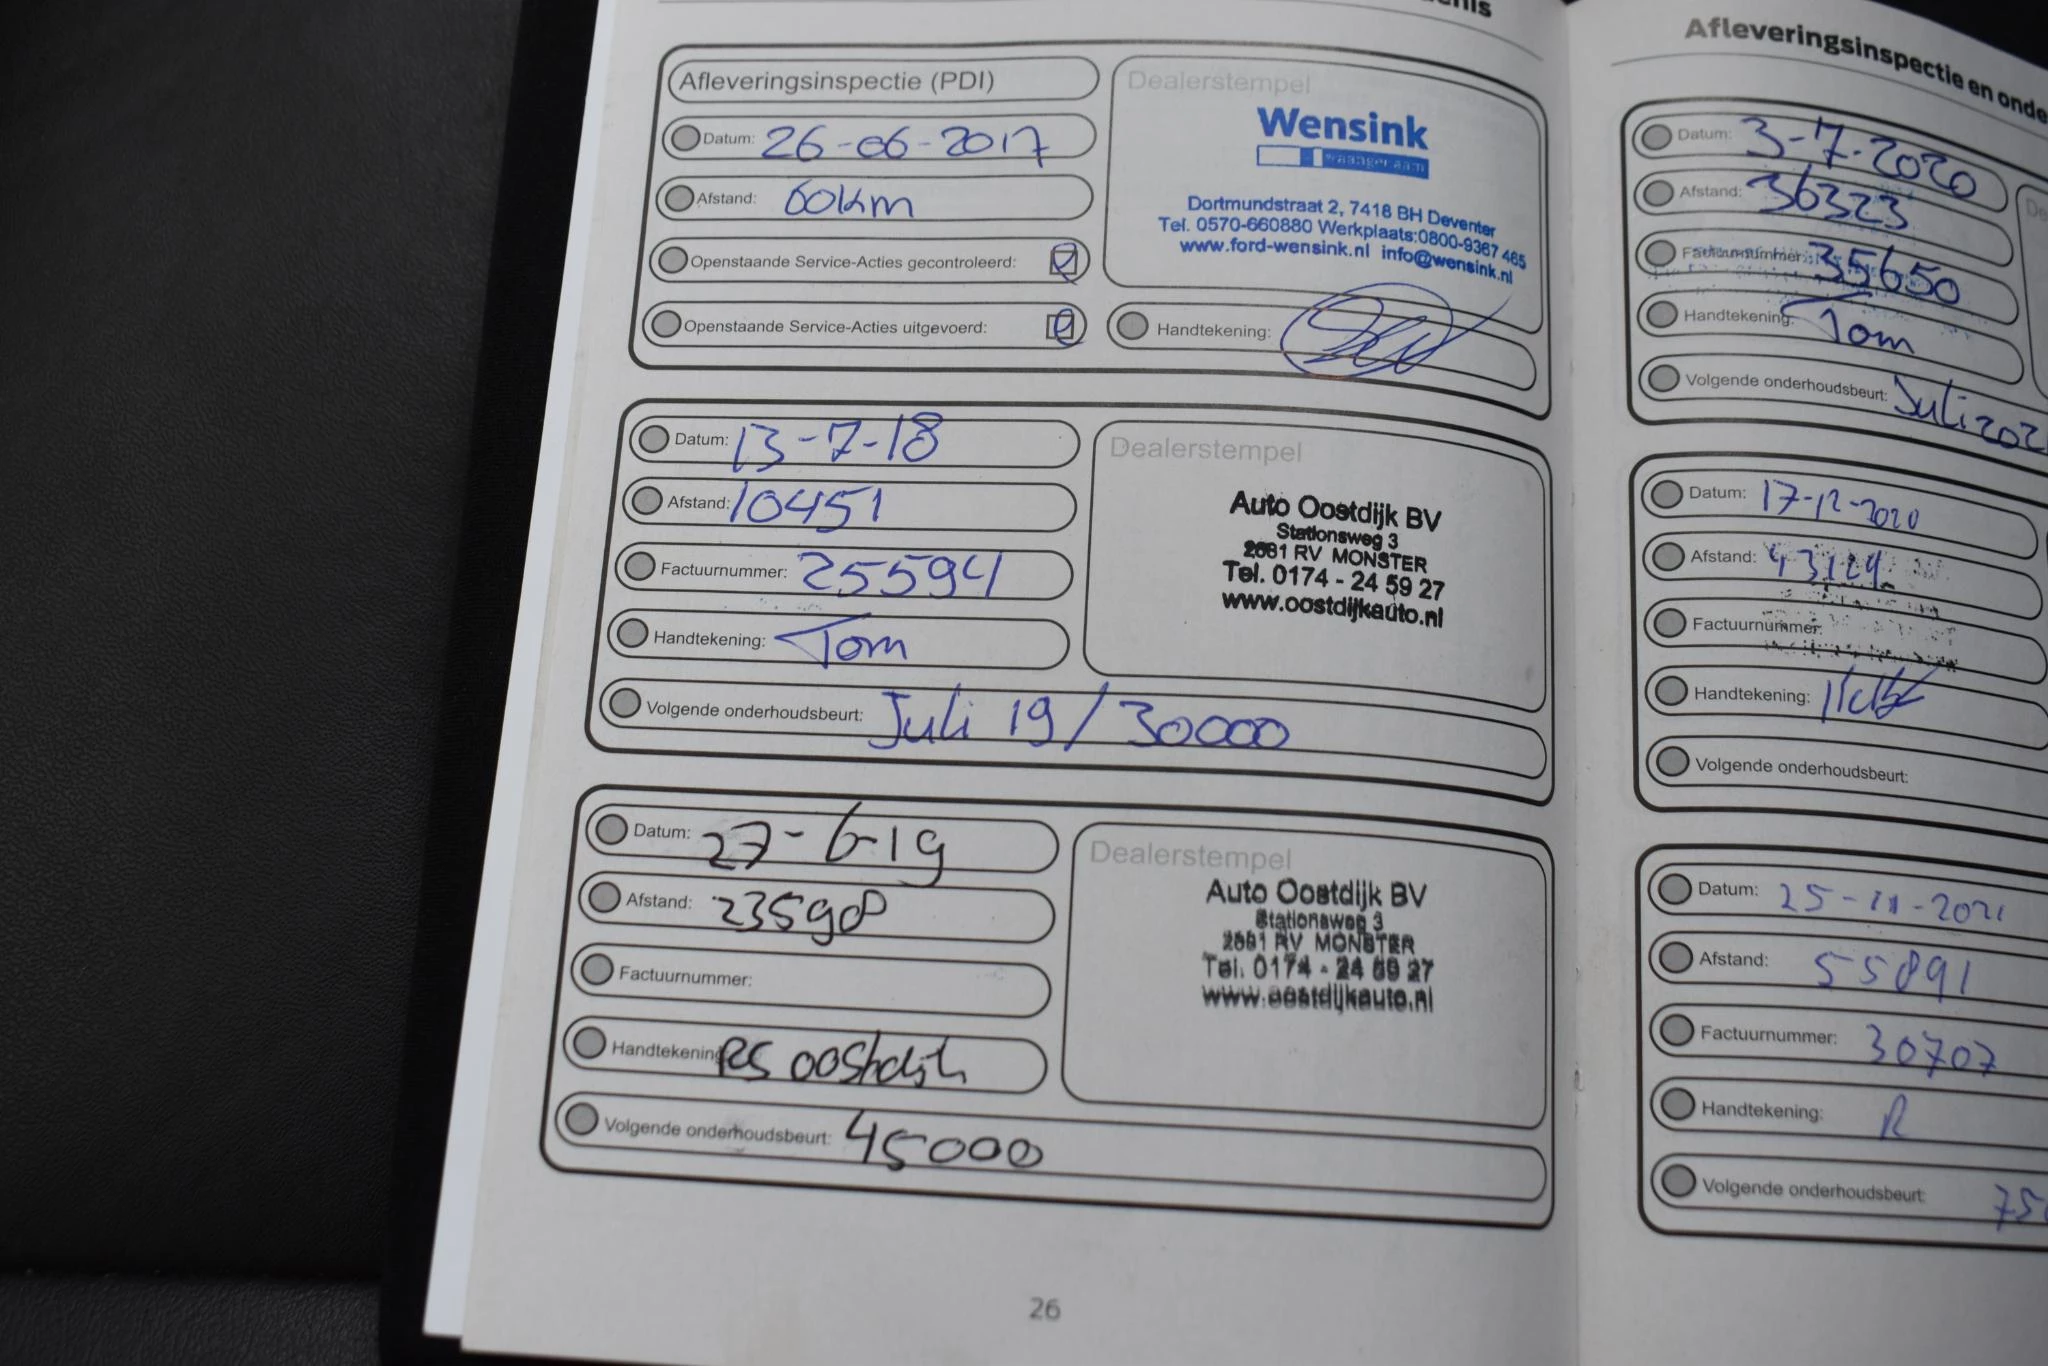 Afleveringsinspectie (PDI)
Datum: 26-06-2017
Afstand: 60km
Openstaande Service-Acties gecontroleerd:
Openstaande Service-Acties uitgevoerd:
Dealerstempel
Wensink
Dortmundstraat 2, 7418 BH Deventer
Tel. 0570-660880 Werkplaats:0800-9367 465
www.ford-wensink.nl info@wensink.nl
Handtekening:
Datum: 13-7-18
Afstand: 10451
Factuurnummer: 25594
Handtekening: Tom
Volgende onderhoudsbeurt: Juli 19 / 30000
Dealerstempel
Auto Oostdijk BV
Stationsweg 3
2681 RV MONSTER
Tel. 0174 - 24 59 27
www.oostdijkauto.nl
Datum: 27-6-19
Afstand: 235908
Factuurnummer:
Handtekening: RS oostdijk
Volgende onderhoudsbeurt: 45000
Dealerstempel
Auto Oostdijk BV
Stationsweg 3
2681 RV MONSTER
Tel. 0174 - 24 59 27
www.oostdijkauto.nl
26
Afleveringsinspectie en onde
Datum: 3-7-2020
Afstand: 36323
Factuurnummer: 35650
Handtekening: Tom
Volgende onderhoudsbeurt: Juli 202
Datum: 17-12-2020
Afstand: 43124
Factuurnummer:
Handtekening:
Volgende onderhoudsbeurt:
Datum: 25-11-2021
Afstand: 55891
Factuurnummer: 30707
Handtekening: R
Volgende onderhoudsbeurt: 75